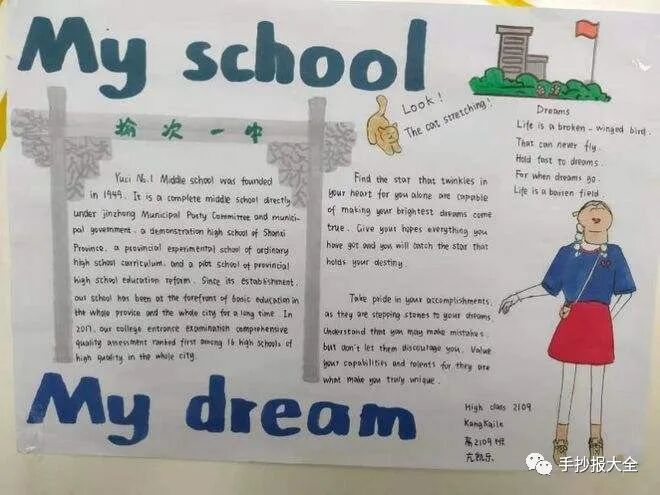 My school
榆次一中
Yuci No.1 Middle school was founded
in 1949. It is a complete middle school directly
under jinzhong Municipal Party Committee and munici-
pal government, a demonstration high school of Shanxi
Province, a provincial experimental school of ordinary
high school curriculum, and a pilot school of provincial
high school education reform. Since its establishment,
our school has been at the forefront of basic education in
the whole provice and the whole city for a long time. In
2017, our college entrance examination comprehensive
quality assessment ranked first among 16 high schools of
high quality in the whole city.
Look!
The cat stretching!
Find the star that twinkles in
your heart for you alone are capable
of making your brightest dreams come
true. Give your hopes everything you
have got and you will catch the star that
holds your destiny
Take pride in your accomplishments,
as they are stepping stones to your dreams.
Understand that you may make mistakes,
but don't let them discourage you. Value
your capabilities and talents for they are
what make you truly unique.
Dreams
Life is a broken-winged bird.
That can never fly.
Hold fast to dreams.
For when dreams go.
Life is a barren field.
My dream
High class 2109
KangKaile
高2109班
亢凯乐
手抄报大全